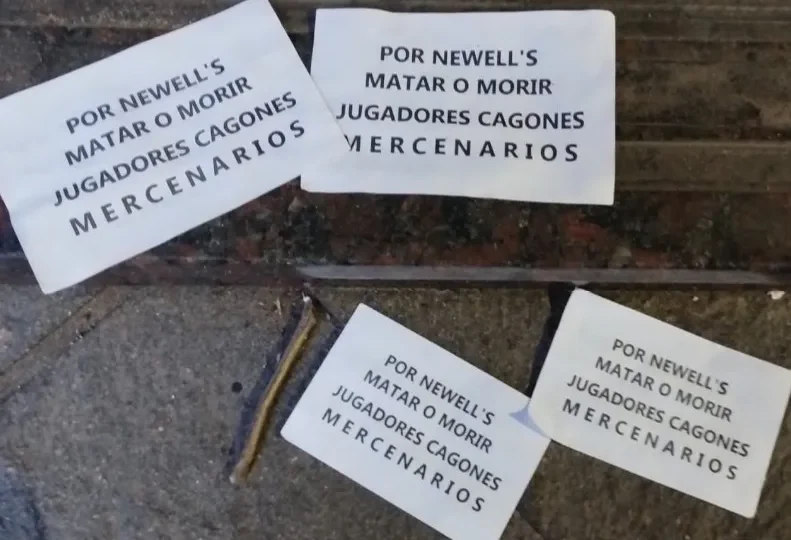 POR NEWELL'S
MATAR O MORIR
JUGADORES CAGONES
MERCENARIOS
POR NEWELL'S
MATAR O MORIR
JUGADORES CAGONES
MERCENARIOS
POR NEWELL'S
MATAR O MORIR
JUGADORES CAGONES
MERCENARIOS
POR NEWELL'S
MATAR O MORIR
JUGADORES CAGONES
MERCENARIOS